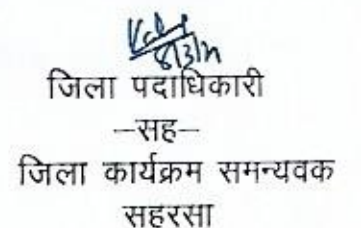 जिला पदाधिकारी
–सह–
जिला कार्यक्रम समन्यवक
सहरसा